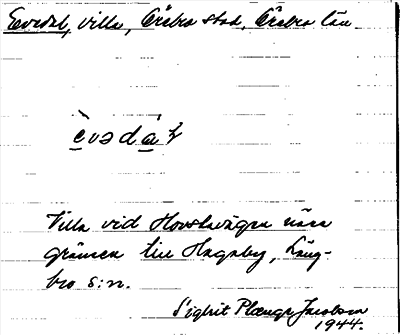 Evedal, villa, Örebro stad, Örebro län
è̱vədȧ̱ꞎ
Villa vid Hovstavägen nära
gränsen till Hagaby, Läng-
bro s:n.
Sigbrit Plænge Jacobson
1944.